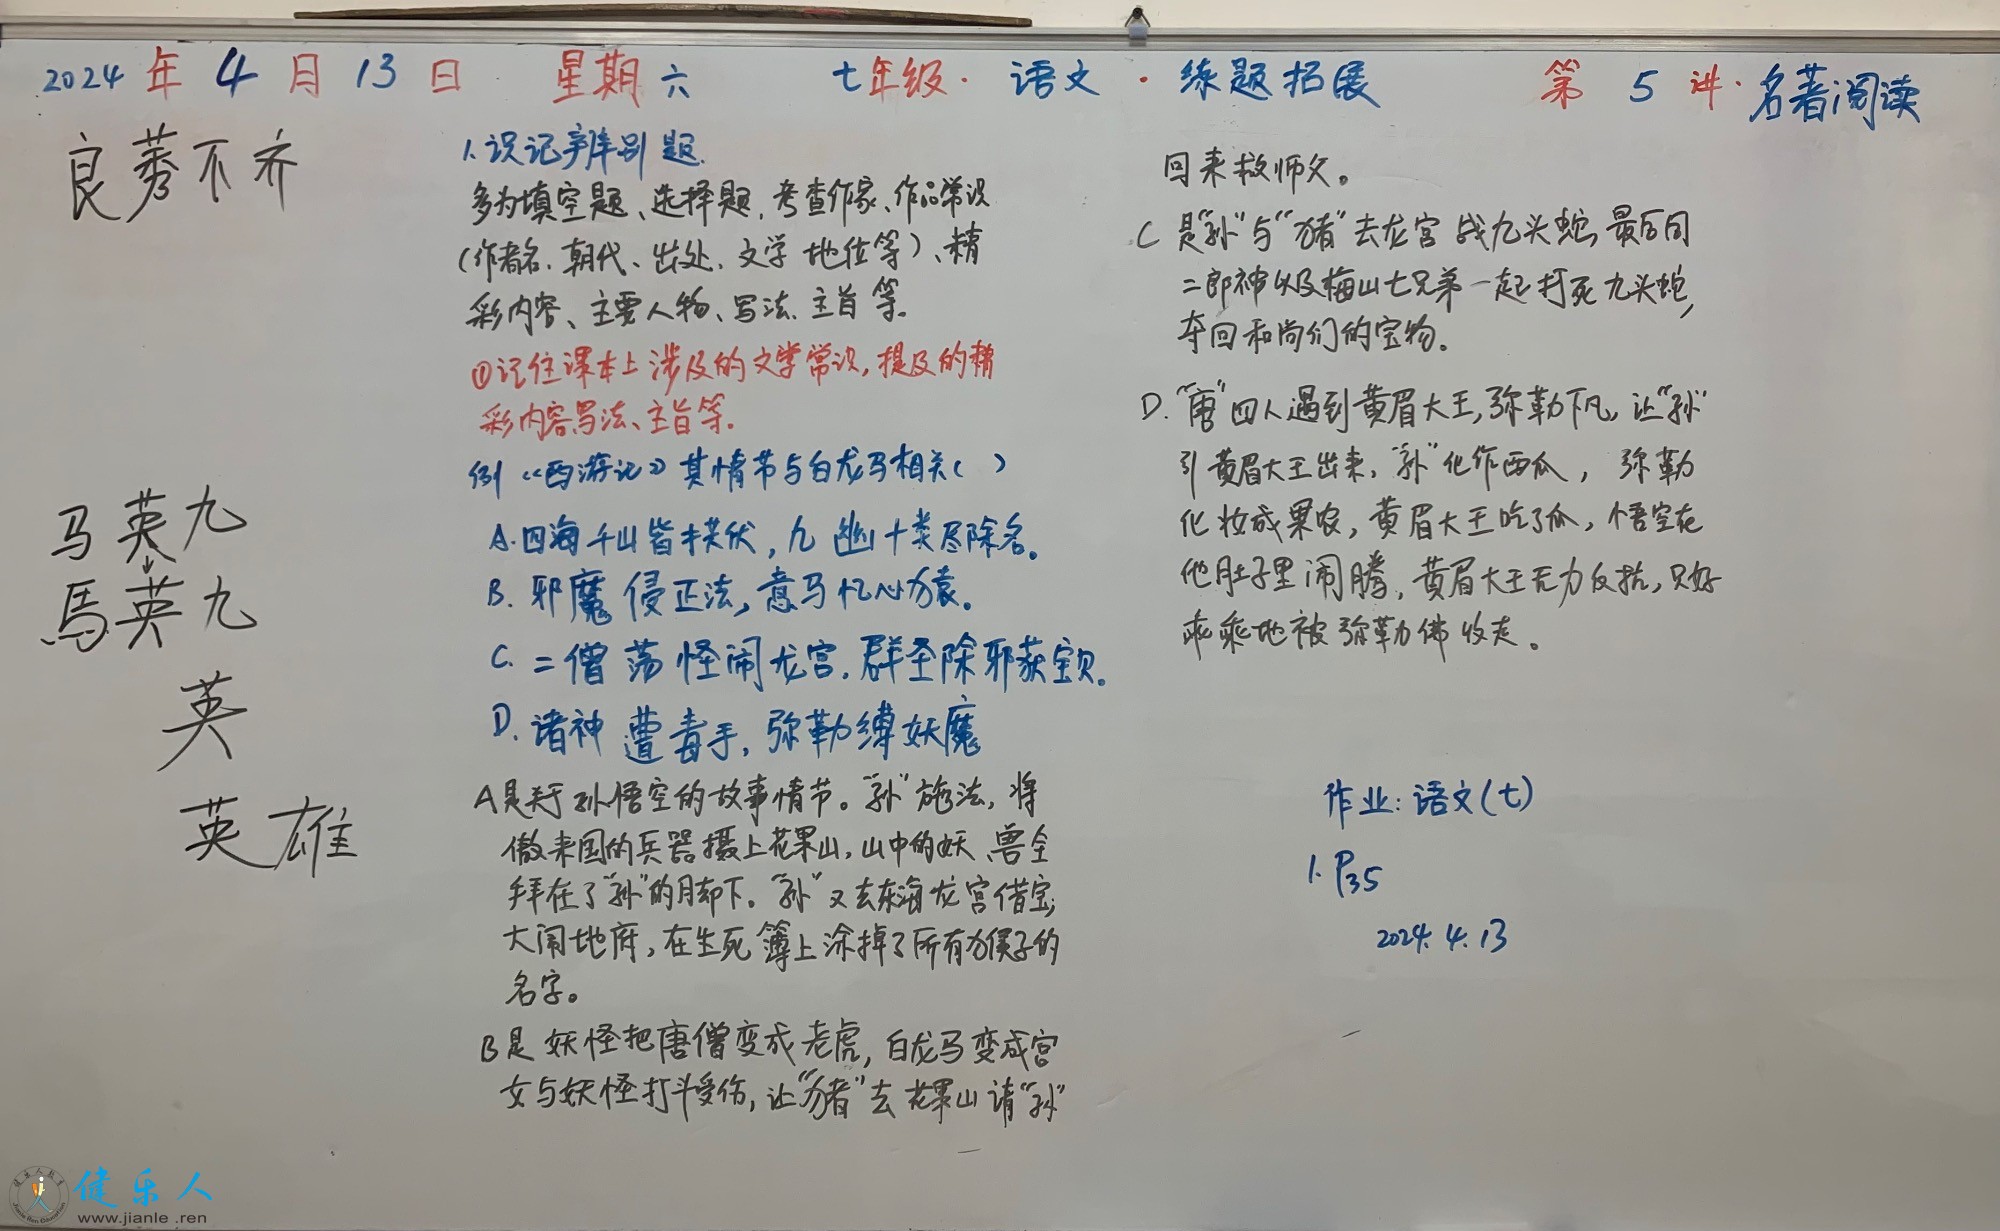 2024年4月13日 星期六 七年级·语文·练题拓展 第5讲·名著阅读
良莠不齐
马英九
馬英九
英
英雄
1.识记辨别题.
多为填空题、选择题，考查作家、作品常识
（作者名、朝代、出处、文学地位等）、精
彩内容、主要人物、写法、主旨等。
①记住课本上涉及的文学常识，提及的精
彩内容、写法、主旨等。
例《西游记》其情节与白龙马相关（ ）
A.四海千山皆拱伏，九幽十类尽除名。
B.邪魔侵正法，意马忆心猿。
C.二僧荡怪闹龙宫.群圣除邪获宝贝.
D.诸神遭毒手，弥勒缚妖魔
A是关于孙悟空的故事情节。“孙”施法，将
傲来国的兵器摄上花果山，山中的妖、兽全
拜在了“孙”的脚下。“孙”又去东海龙宫借宝，
大闹地府，在生死簿上涂掉了所有猴子的
名字。
B是妖怪把唐僧变成老虎，白龙马变成宫
女与妖怪打斗受伤，让“猪”去花果山请“孙”
回来救师父。
C是“孙”与“猪”去龙宫战九头虫，最后同
二郎神以及梅山七兄弟一起打死九头虫，
夺回和尚们的宝物。
D.“唐”四人遇到黄眉大王，弥勒下凡，让“孙”
引黄眉大王出来，“孙”化作西瓜，弥勒
化妆成果农，黄眉大王吃了瓜，悟空在
他肚子里闹腾，黄眉大王无力反抗，只好
乖乖地被弥勒佛收走。
作业：语文（七）
1.P35
2024.4.13
健乐人
www.jianle.ren